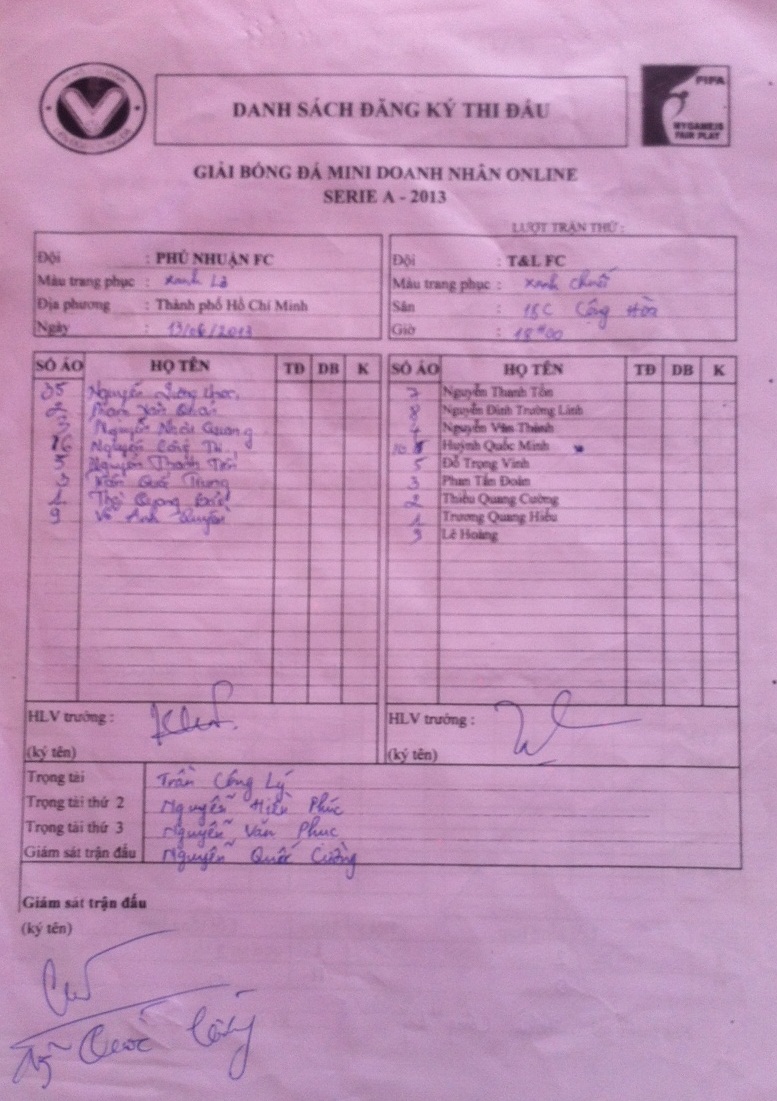 DANH SÁCH ĐĂNG KÝ THI ĐẤU
FIFA
MY GAME IS
FAIR PLAY
GIẢI BÓNG ĐÁ MINI DOANH NHÂN ONLINE
SERIE A - 2013
LƯỢT TRẬN THỨ :
Đội : PHÚ NHUẬN FC
Màu trang phục : xanh Lá
Địa phương : Thành phố Hồ Chí Minh
Ngày : 13/06/2013
Đội : T&L FC
Màu trang phục : xanh chuối
Sân : 18C Cộng Hòa
Giờ : 18H00
SỐ ÁO HỌ TÊN TĐ DB K
35 Nguyễn
2 Phạm
3 Nguyễn Quang
16 Nguyễn Công
5 Nguyễn Thanh
3 Trần Quốc Trung
1 Quang
9 Võ Anh
SỐ ÁO HỌ TÊN TĐ DB K
7 Nguyễn Thanh Tôn
8 Nguyễn Đình Trường Linh
4 Nguyễn Văn Thành
10 Huỳnh Quốc Minh
5 Đỗ Trọng Vinh
3 Phan Tấn Đoàn
2 Thiều Quang Cường
1 Trương Quang Hiếu
9 Lê Hoàng
HLV trưởng :
(ký tên)
HLV trưởng :
(ký tên)
Trọng tài Trần Công Lý
Trọng tài thứ 2 Nguyễn Hiền Phúc
Trọng tài thứ 3 Nguyễn Văn Phúc
Giám sát trận đấu Nguyễn Quốc Cường
Giám sát trận đấu
(ký tên)
Quốc Cường